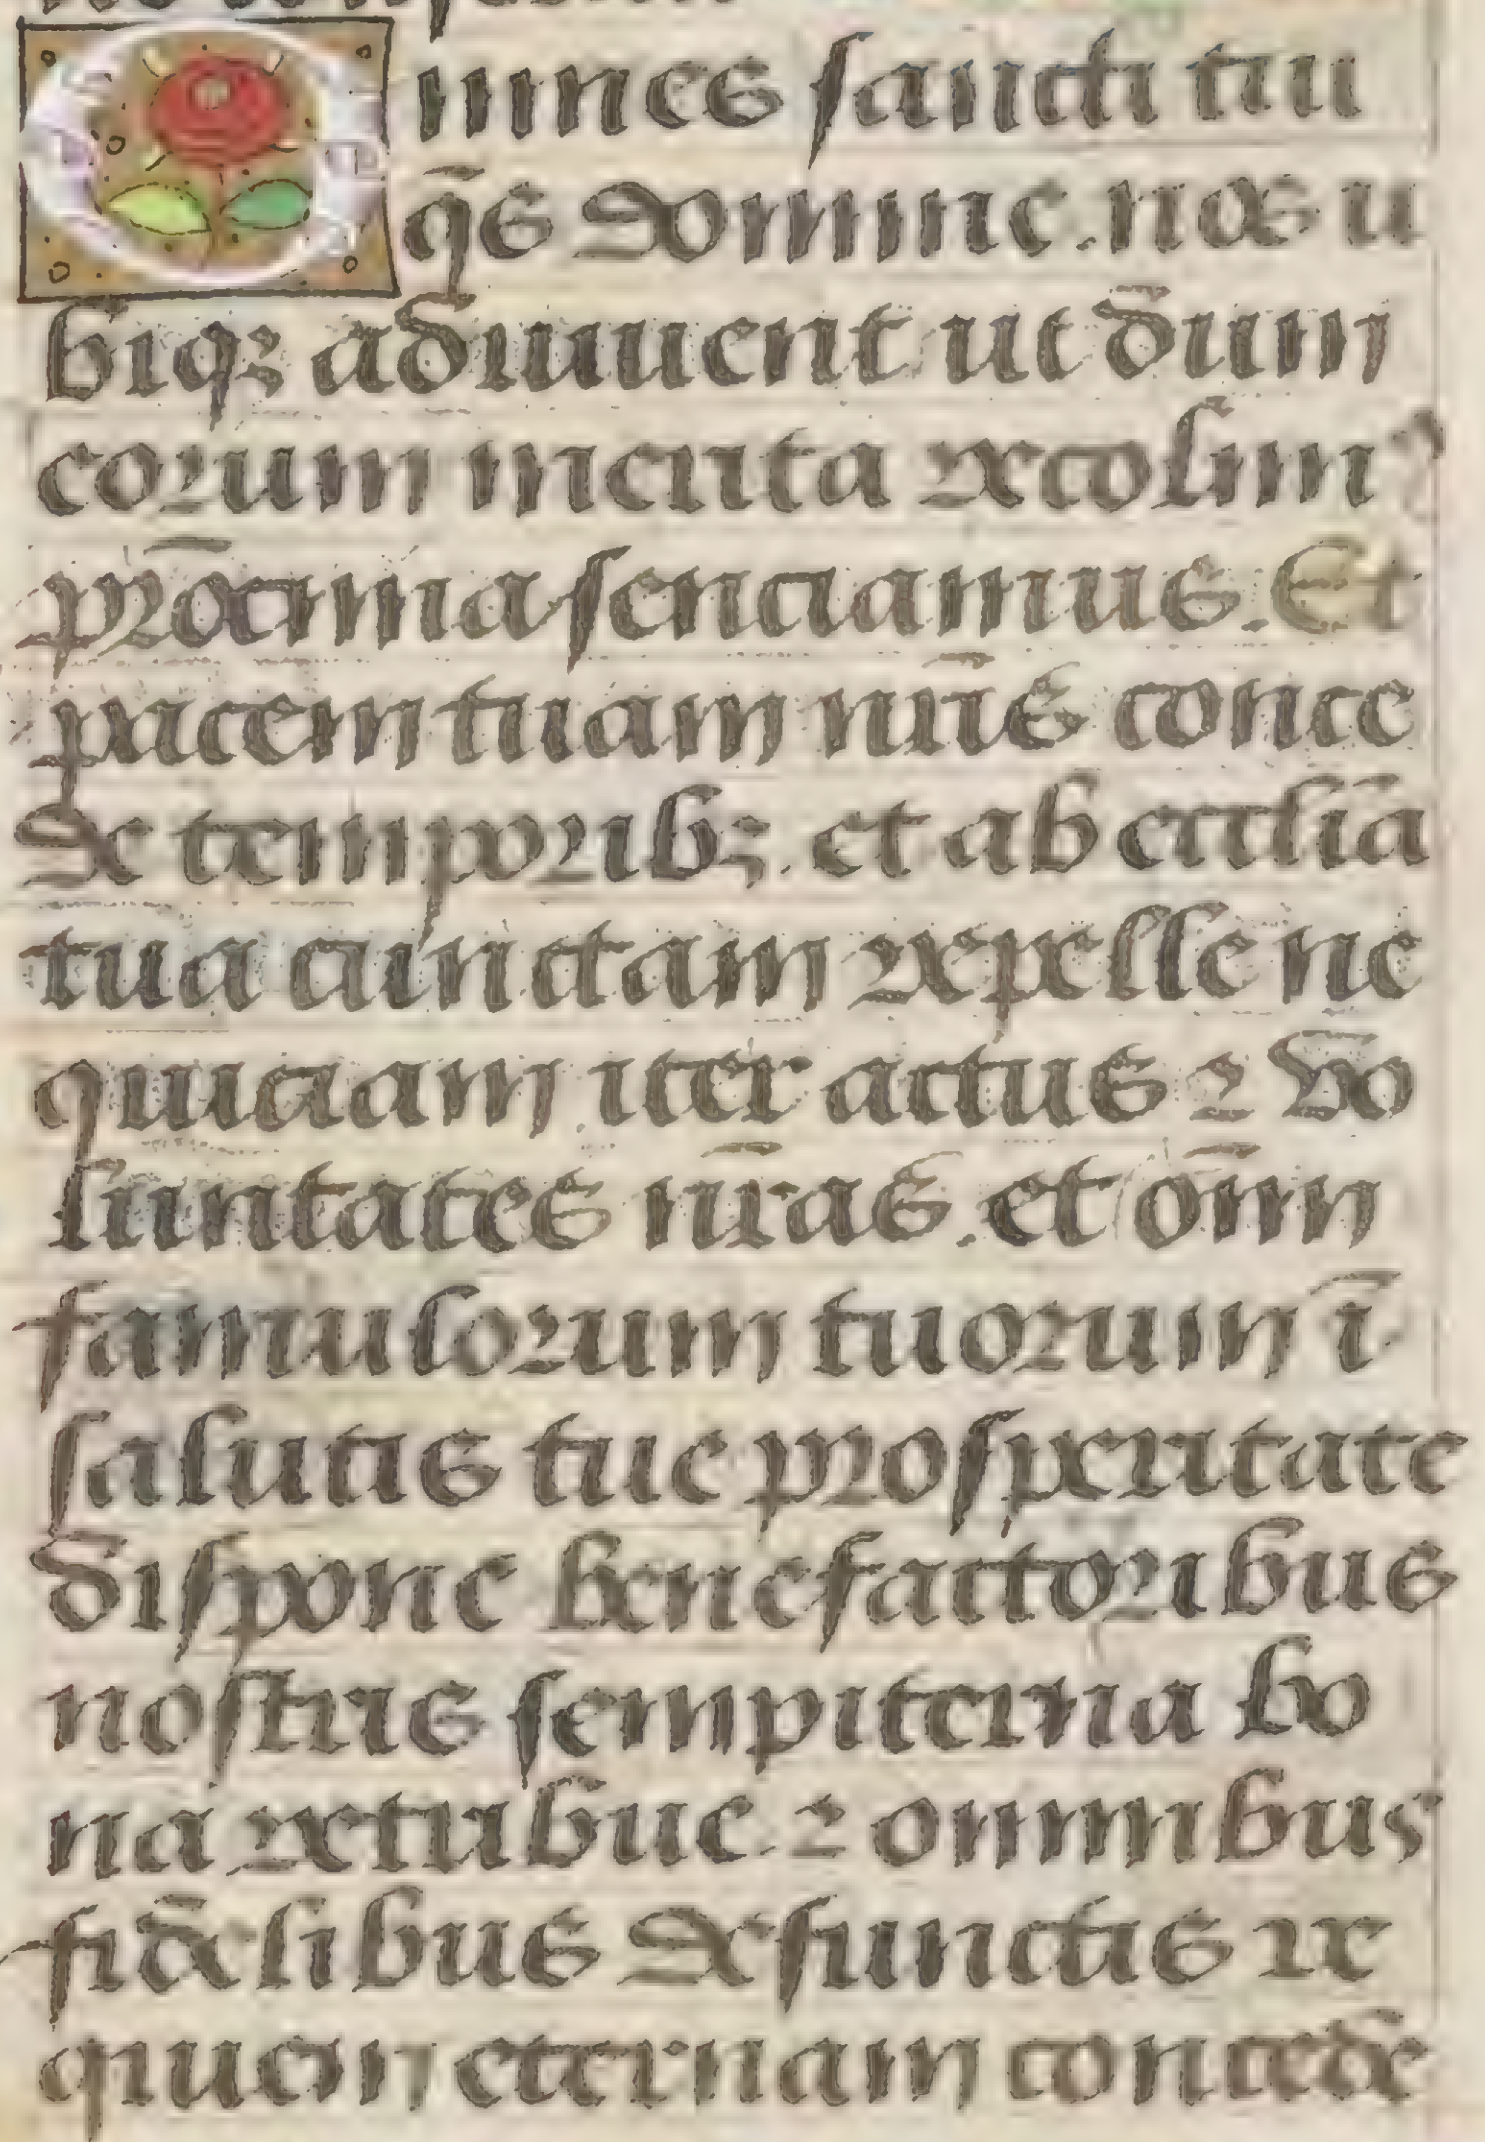 Omnes sancti tui
q̄s domine. nos u
biqꝫ adiuuent ut dum
eorum merita recolimꝰ
pr̄ocinia senciamus. Et
pacem tuam nr̄is conce
de temporibꝫ. et ab ecclīa
tua cunctam repelle ne
quiciam. iter actus ⁊ vo
luntates nr̄as. et om̄n
famulorum tuorum ī
salutis tue prosperitate
dispone benefactoribus
nostris sempiterna bo
na retribue. ⁊ omnibus
fidelibus defunctis re
quiem eternam concede